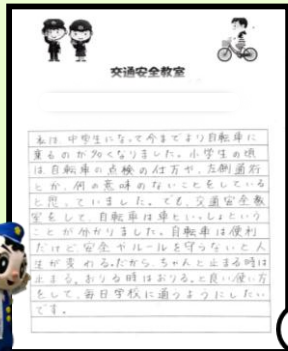 交通安全教室
私は中学生になって今までより自転車に
乗るのが多くなりました。小学生の頃
は自転車の点検の仕方や、左側通行
とか、何の意味のないことをしている
と思っていました。でも、交通安全教
室をして、自転車は車といっしょという
ことが分かりました。自転車は便利
だけど安全やルールを守らないと人
生が変わる。だから、ちゃんと止まる時は
止まる、おりる時はおりる。と良い使い方
をして、毎日学校に通うようにしたい
です。